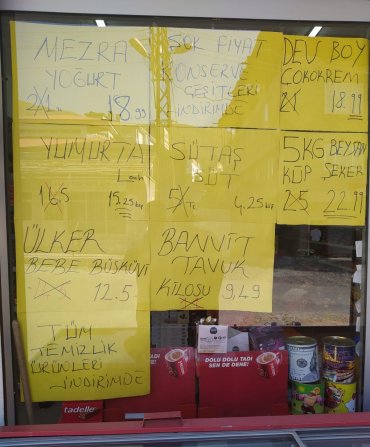 MEZRA
YOGURT
18.99
ŞOK FİYAT
KONSERVE
ÇEŞİTLERİ
İNDİRİMDE
DEV BOY
ÇOKOKREM
18.99
YUMURTA
15.25 kr
SÜTAŞ
SÜT
4.25 kr
5KG BEYSAN
KÜP ŞEKER
22.99
ÜLKER
BEBE BÜSKÜVİ
12.5
BANVİT
TAVUK
KİLOSU 9,49
TÜM
TEMİZLİK
ÜRÜNLERİ
İNDİRİMDE
tadelle
DOLU DOLU TADI
SEN DE DENE!